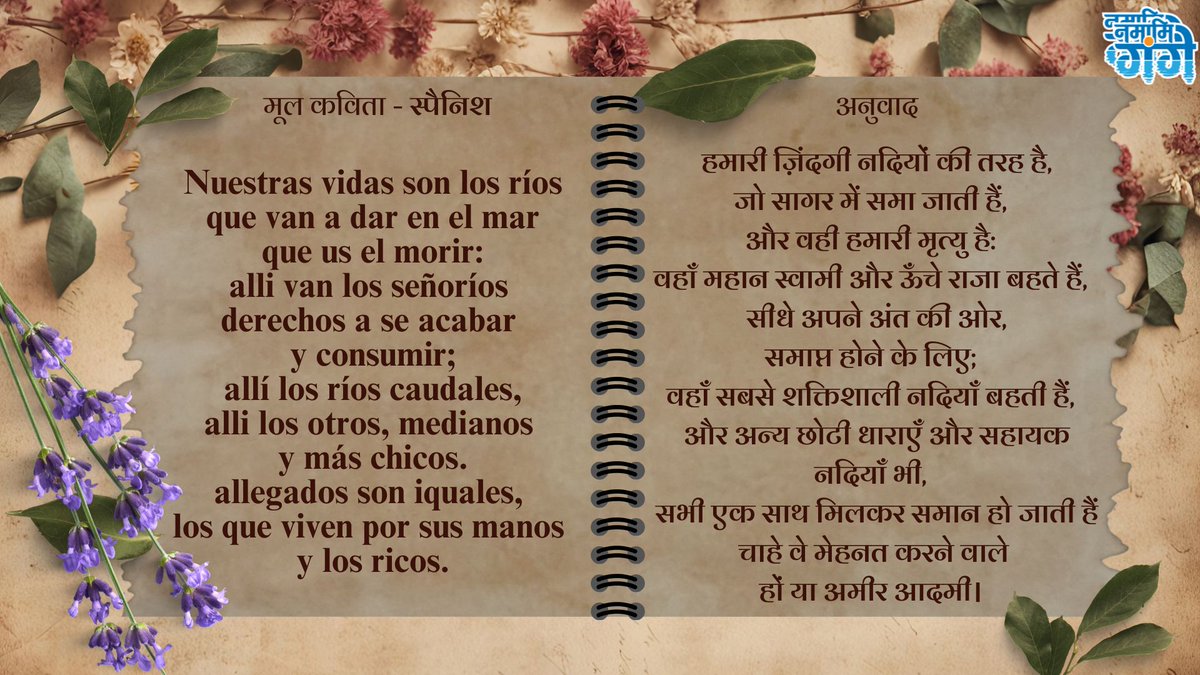 नमामि
गंगे
मूल कविता - स्पैनिश
Nuestras vidas son los ríos
que van a dar en el mar
que us el morir:
alli van los señoríos
derechos a se acabar
y consumir;
allí los ríos caudales,
alli los otros, medianos
y más chicos.
allegados son iquales,
los que viven por sus manos
y los ricos.
अनुवाद
हमारी ज़िंदगी नदियों की तरह है,
जो सागर में समा जाती हैं,
और वही हमारी मृत्यु है:
वहाँ महान स्वामी और ऊँचे राजा बहते हैं,
सीधे अपने अंत की ओर,
समाप्त होने के लिए;
वहाँ सबसे शक्तिशाली नदियाँ बहती हैं,
और अन्य छोटी धाराएँ और सहायक
नदियाँ भी,
सभी एक साथ मिलकर समान हो जाती हैं
चाहे वे मेहनत करने वाले
हों या अमीर आदमी।